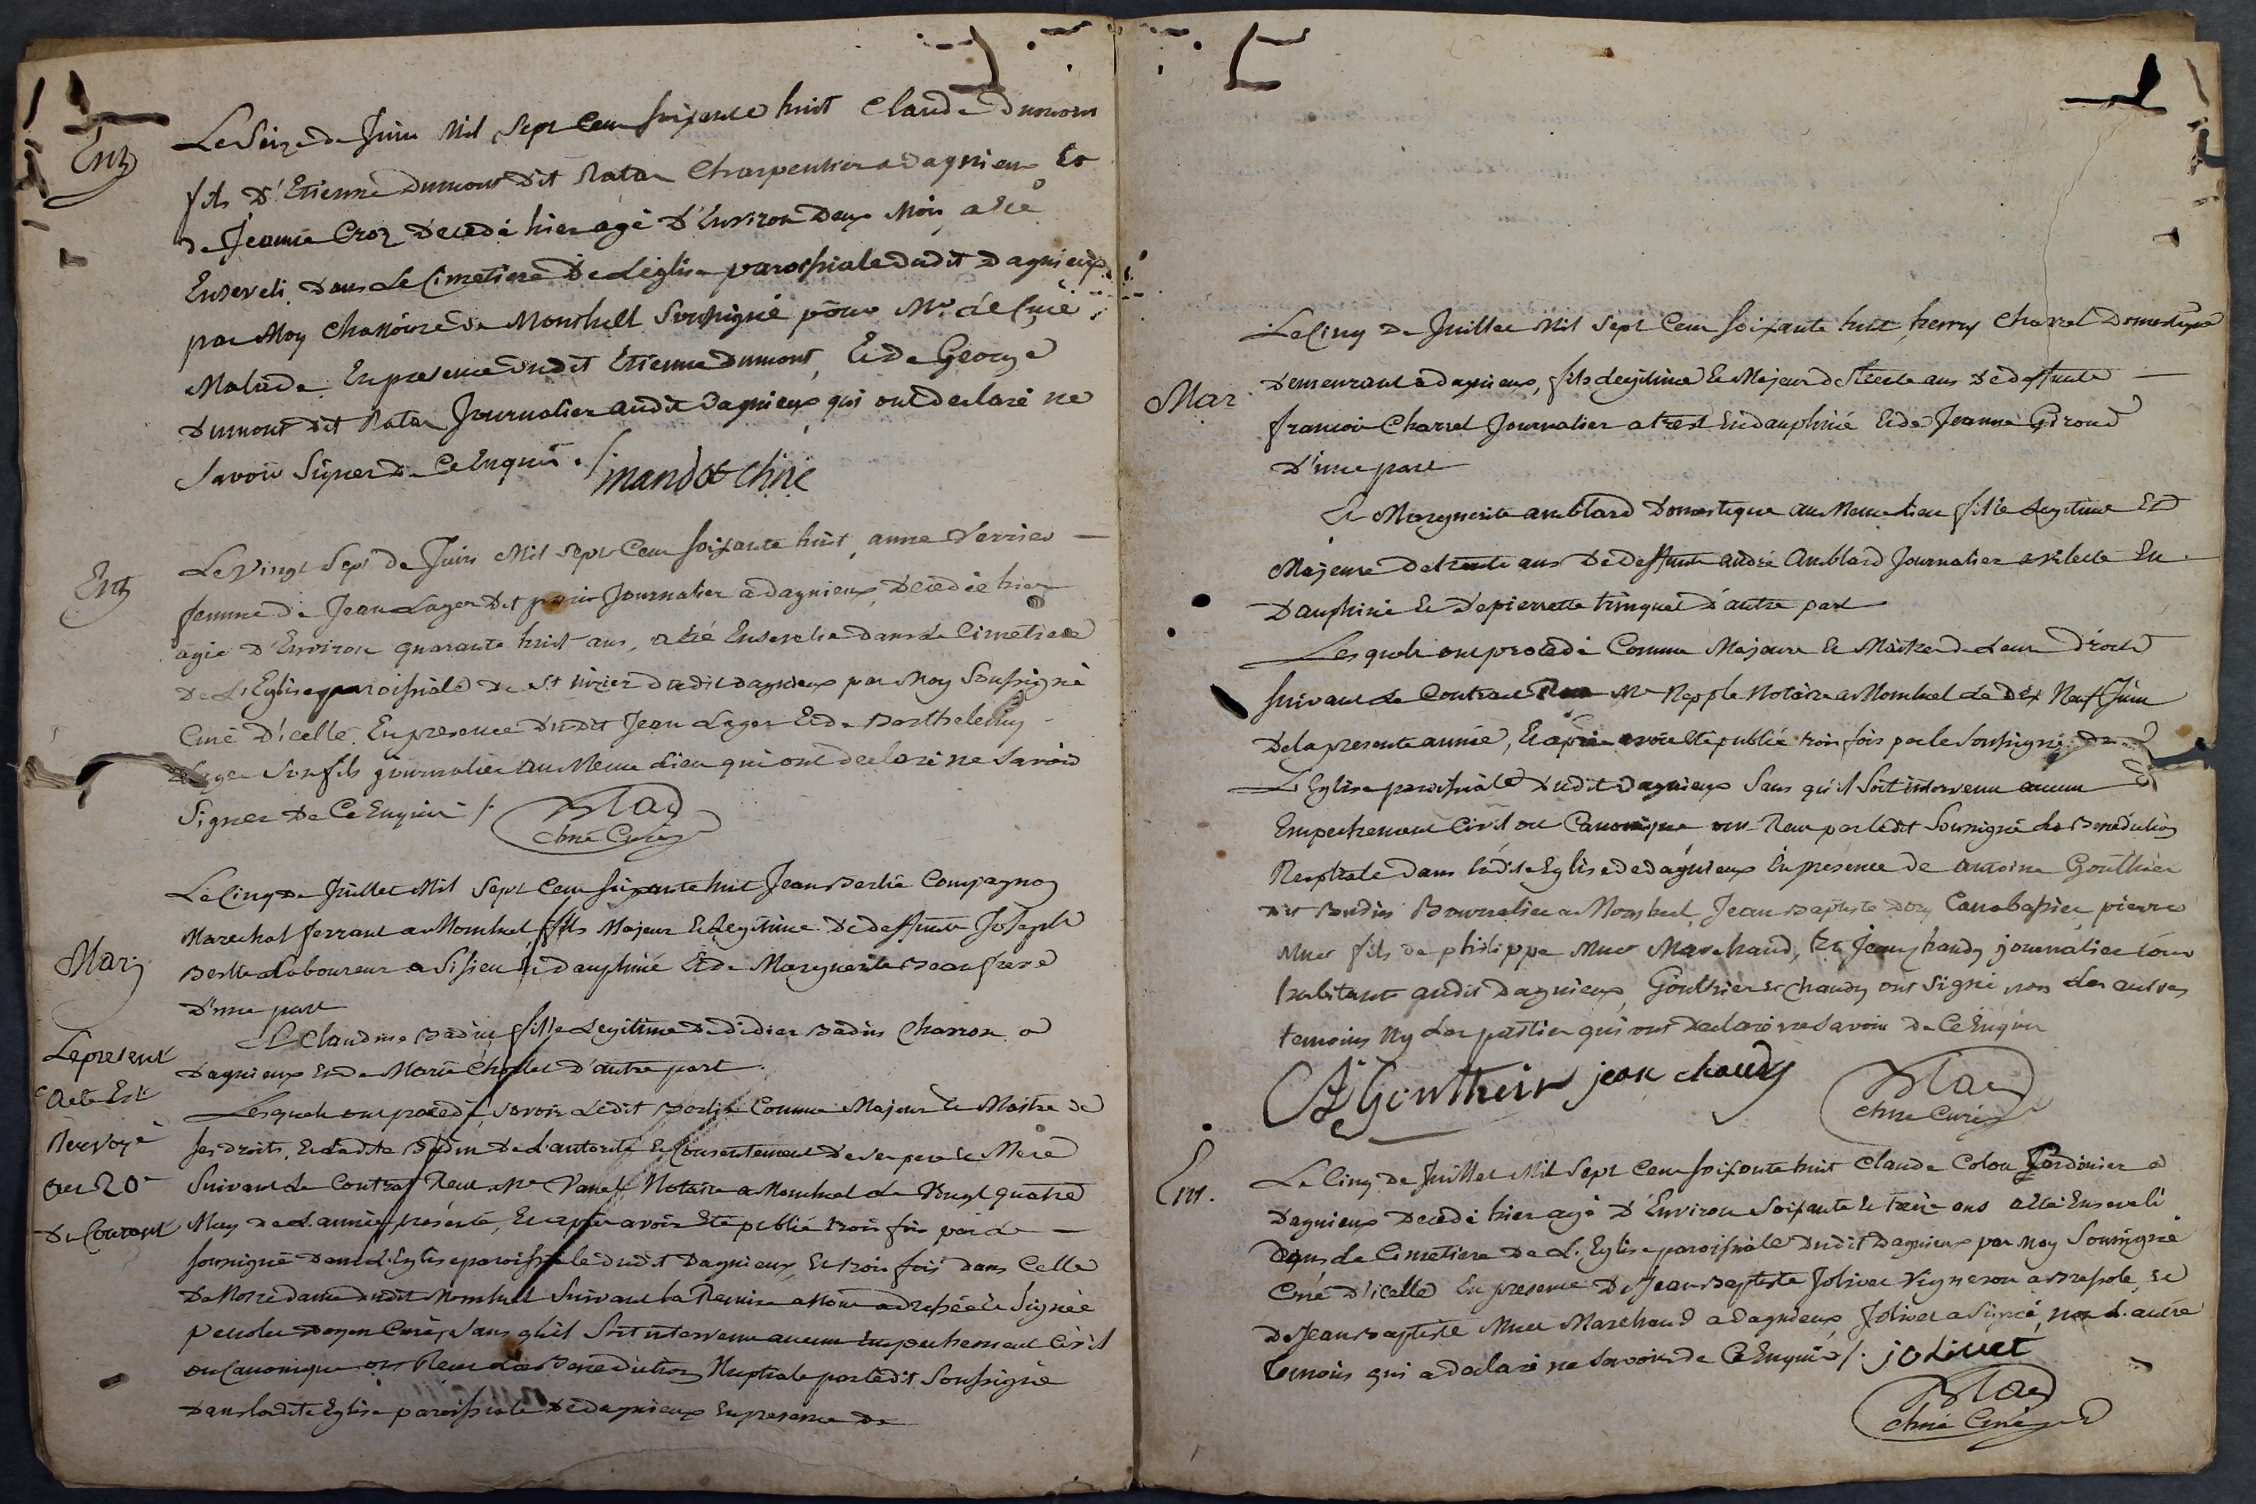 Ent
Le Seize de Juin Mil Sept Cent soixante huit Claude Dumont
fils D'Etienne Dumont Dit Ratta Charpentier a dagnieux Et
de Jeanne Croz Decedé hier agé D'Environ Deux Mois, a Eté
Enseveli Dans Le Cimetiere De L'église parroissiale dudit Dagnieux
par Moy Chanoine de Montluel Soussigné pour Mr. de Curé
Malade En presence dudit Etienne Dumont, Et de George
Dumont dit Ratta Journalier audit Dagnieux qui ont declaré ne
Savoir Signer De Ce Enquis ./. mandot chne
Ent
Le Vingt Sept de Juin Mil Sept Cent soixante huit, anne Verrier
femme de Jean Lager Dit Journalier a dagnieux, Decedée hier
agée D'Environ quarante huit ans, a Eté Ensevelie dans Le Cimetiere
De L'Eglise parroissiale De St dudit dagnieux par Moy Soussigné
Curé D'icelle. En presence Dudit Jean Lager Et de Barthelemy
Lager Son fils journalier au Meme Lieu qui ont declaré ne Savoir
Signer De Ce Enquis /.
chne Curé
Mar
Le Cinq De Juillet Mil Sept Cent soixante huit Jean Berlie Compagnon
Marechal ferrant a Montluel fils Majeur Et Legitime De deffunt Joseph
Berlie Laboureur a Sisieu En dauphiné Et de Marguerite Beaufrere
D'une part
Et Claudine Badin fille Legitime De didier Badin Charron a
Dagnieux Et de Marie Chollet D'autre part.
Lepresent
acte Est
Renvoyé
au 20e
Du Courant
Lesquels ont procedé, savoir Ledit Berlie Comme Majeur Et Maitre de
ses droits, Et Ladite Badin De L'autorité Et Consentement De ses pere Et Mere
Suivant Le Contrat Recu Me Notaire a Montluel Le Vingt quatre
May de L'année presente, Et apres avoir Eté publié trois fois par Le
soussigné Dans L'Eglise paroissiale dudit Dagnieux Et trois fois dans Celle
De Notre dame dudit Montluel Suivant La Remise a Nous adressée Et Signée
Doyen Curé, Sans qu'il Soit intervenu aucun Empechement Civil
ou Canonique ont Recu La Benediction Nuptiale par Ledit Soussigné
Dans Ladite Eglise paroissiale De dagnieux En presence De
Mar
Le Cinq De Juillet Mil Sept Cent soixante huit, henry Charrel Domestique
Demeurant a dagnieux, fils Legitime Et Majeur de trente ans De deffunt
francois Charrel Journalier a En dauphiné Et de Jeanne Giroud
D'une part
Et Marguerite amblard Domestique au Meme Lieu fille Legitime Et
Majeure De trente ans De deffunt andré Amblard Journalier a En
Dauphiné Et De pierrette trinquet D'autre part
Lesquels ont procedé Comme Majeurs Et Maitres de Leurs Droits
suivant Le Contrat Recu Me Nepple Notaire a Montluel Le Dix Neuf Juin
De la presente année, Et apres avoir Eté publié trois fois par le Soussigné dans
L'Eglise paroissiale Dudit Dagnieux Sans qu'il Soit intervenu aucun
Empechement Civil ou Canonique ont Recu par Ledit Soussigné La Benediction
Nuptiale Dans Ladite Eglise de dagnieux En presence de Antoine Gonthier
dit Baudin Bourrelier a Montluel, Jean Baptiste Cambassier, pierre
Muet fils de philippe Muet Marchand, Et Jean chaudy journalier tous
habitants audit Dagnieux, Gonthier Et Chaudy ont Signé non Les autres
temoins Ny Les parties qui ont Declaré ne Savoir De Ce Enquis
Gontheir jean chaudy
chne Curé
Ent.
Le Cinq De Juillet Mil Sept Cent soixante huit Claude Colon Jardinier a
Dagnieux Decedé hier agé D'Environ Soixante Et treize ans a Eté Enseveli
Dans Le Cimetiere De L'Eglise paroissiale Dudit Dagnieux par Moy Soussigné
Curé D'icelle En presence De Jean Baptiste Jolivet Vigneron a Bressole, Et
De Jean Baptiste Muet Marchand a dagnieux, Jolivet a Signé, non L'autre
temoin qui a declaré ne Savoir de Ce Enquis /. jolivet
chne Curé